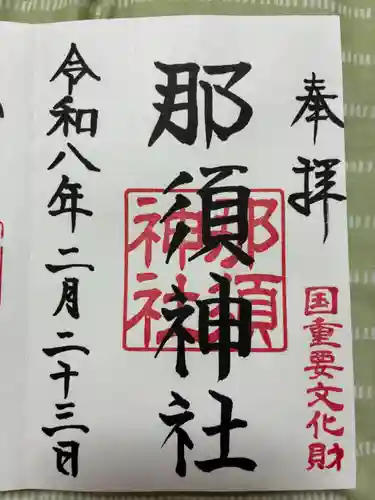 奉拝
国重要文化財
那須神社
那須神社
令和八年二月二十三日